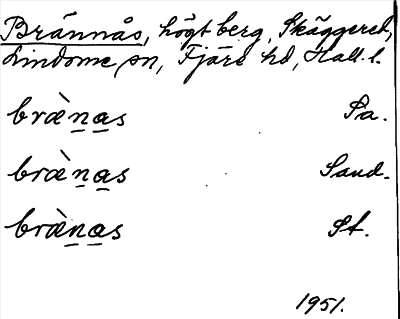 Brännås, högt berg, Skäggered,
Lindome sn, Fjäre hd, Hall. l.
bræ̀nas Sa.
bræ̀nas Sand.
bræ̀nas St.
1951.